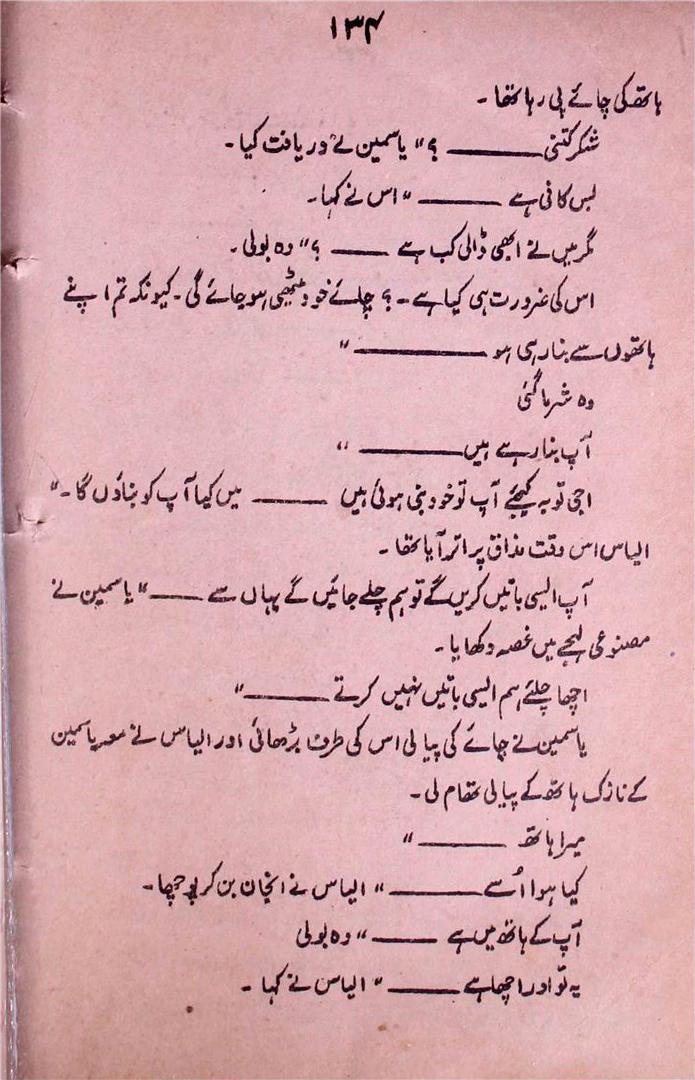 ۱۳۴
ہاتھ کی چائے پی رہا تھا۔
شکر کتنی ——— ؟" یاسمین نے دریافت کیا۔
بس کافی ہے ——— " اس نے کہا۔
مگر میں نے ابھی ڈالی کب ہے ——— ؟" وہ بولی۔
اس کی ضرورت ہی کیا ہے ۔ ؟ چائے خود میٹھی ہو جائے گی۔ کیونکہ تم اپنے
ہاتھوں سے بنا رہی ہو ——— "
وہ شرما گئی
آپ بنا رہے ہیں ——— "
اجی توبہ کیجئے آپ تو خود بنی ہوئی ہیں ——— میں کیا آپ کو بناؤں گا۔"
الیاس اس وقت مذاق پر اتر آیا تھا۔
آپ ایسی باتیں کریں گے تو ہم چلے جائیں گے یہاں سے ——— " یاسمین نے
مصنوعی لہجے میں غصہ دکھایا۔
اچھا چلئے ہم ایسی باتیں نہیں کرتے ——— "
یاسمین نے چائے کی پیالی اس کی طرف بڑھائی اور الیاس نے معہ یاسمین
کے نازک ہاتھ کے پیالی تھام لی۔
میرا ہاتھ ——— "
کیا ہوا اُسے ——— " الیاس نے انجان بن کر پوچھا۔
آپ کے ہاتھ میں ہے ——— " وہ بولی
یہ تو اور اچھا ہے ——— " الیاس نے کہا ۔